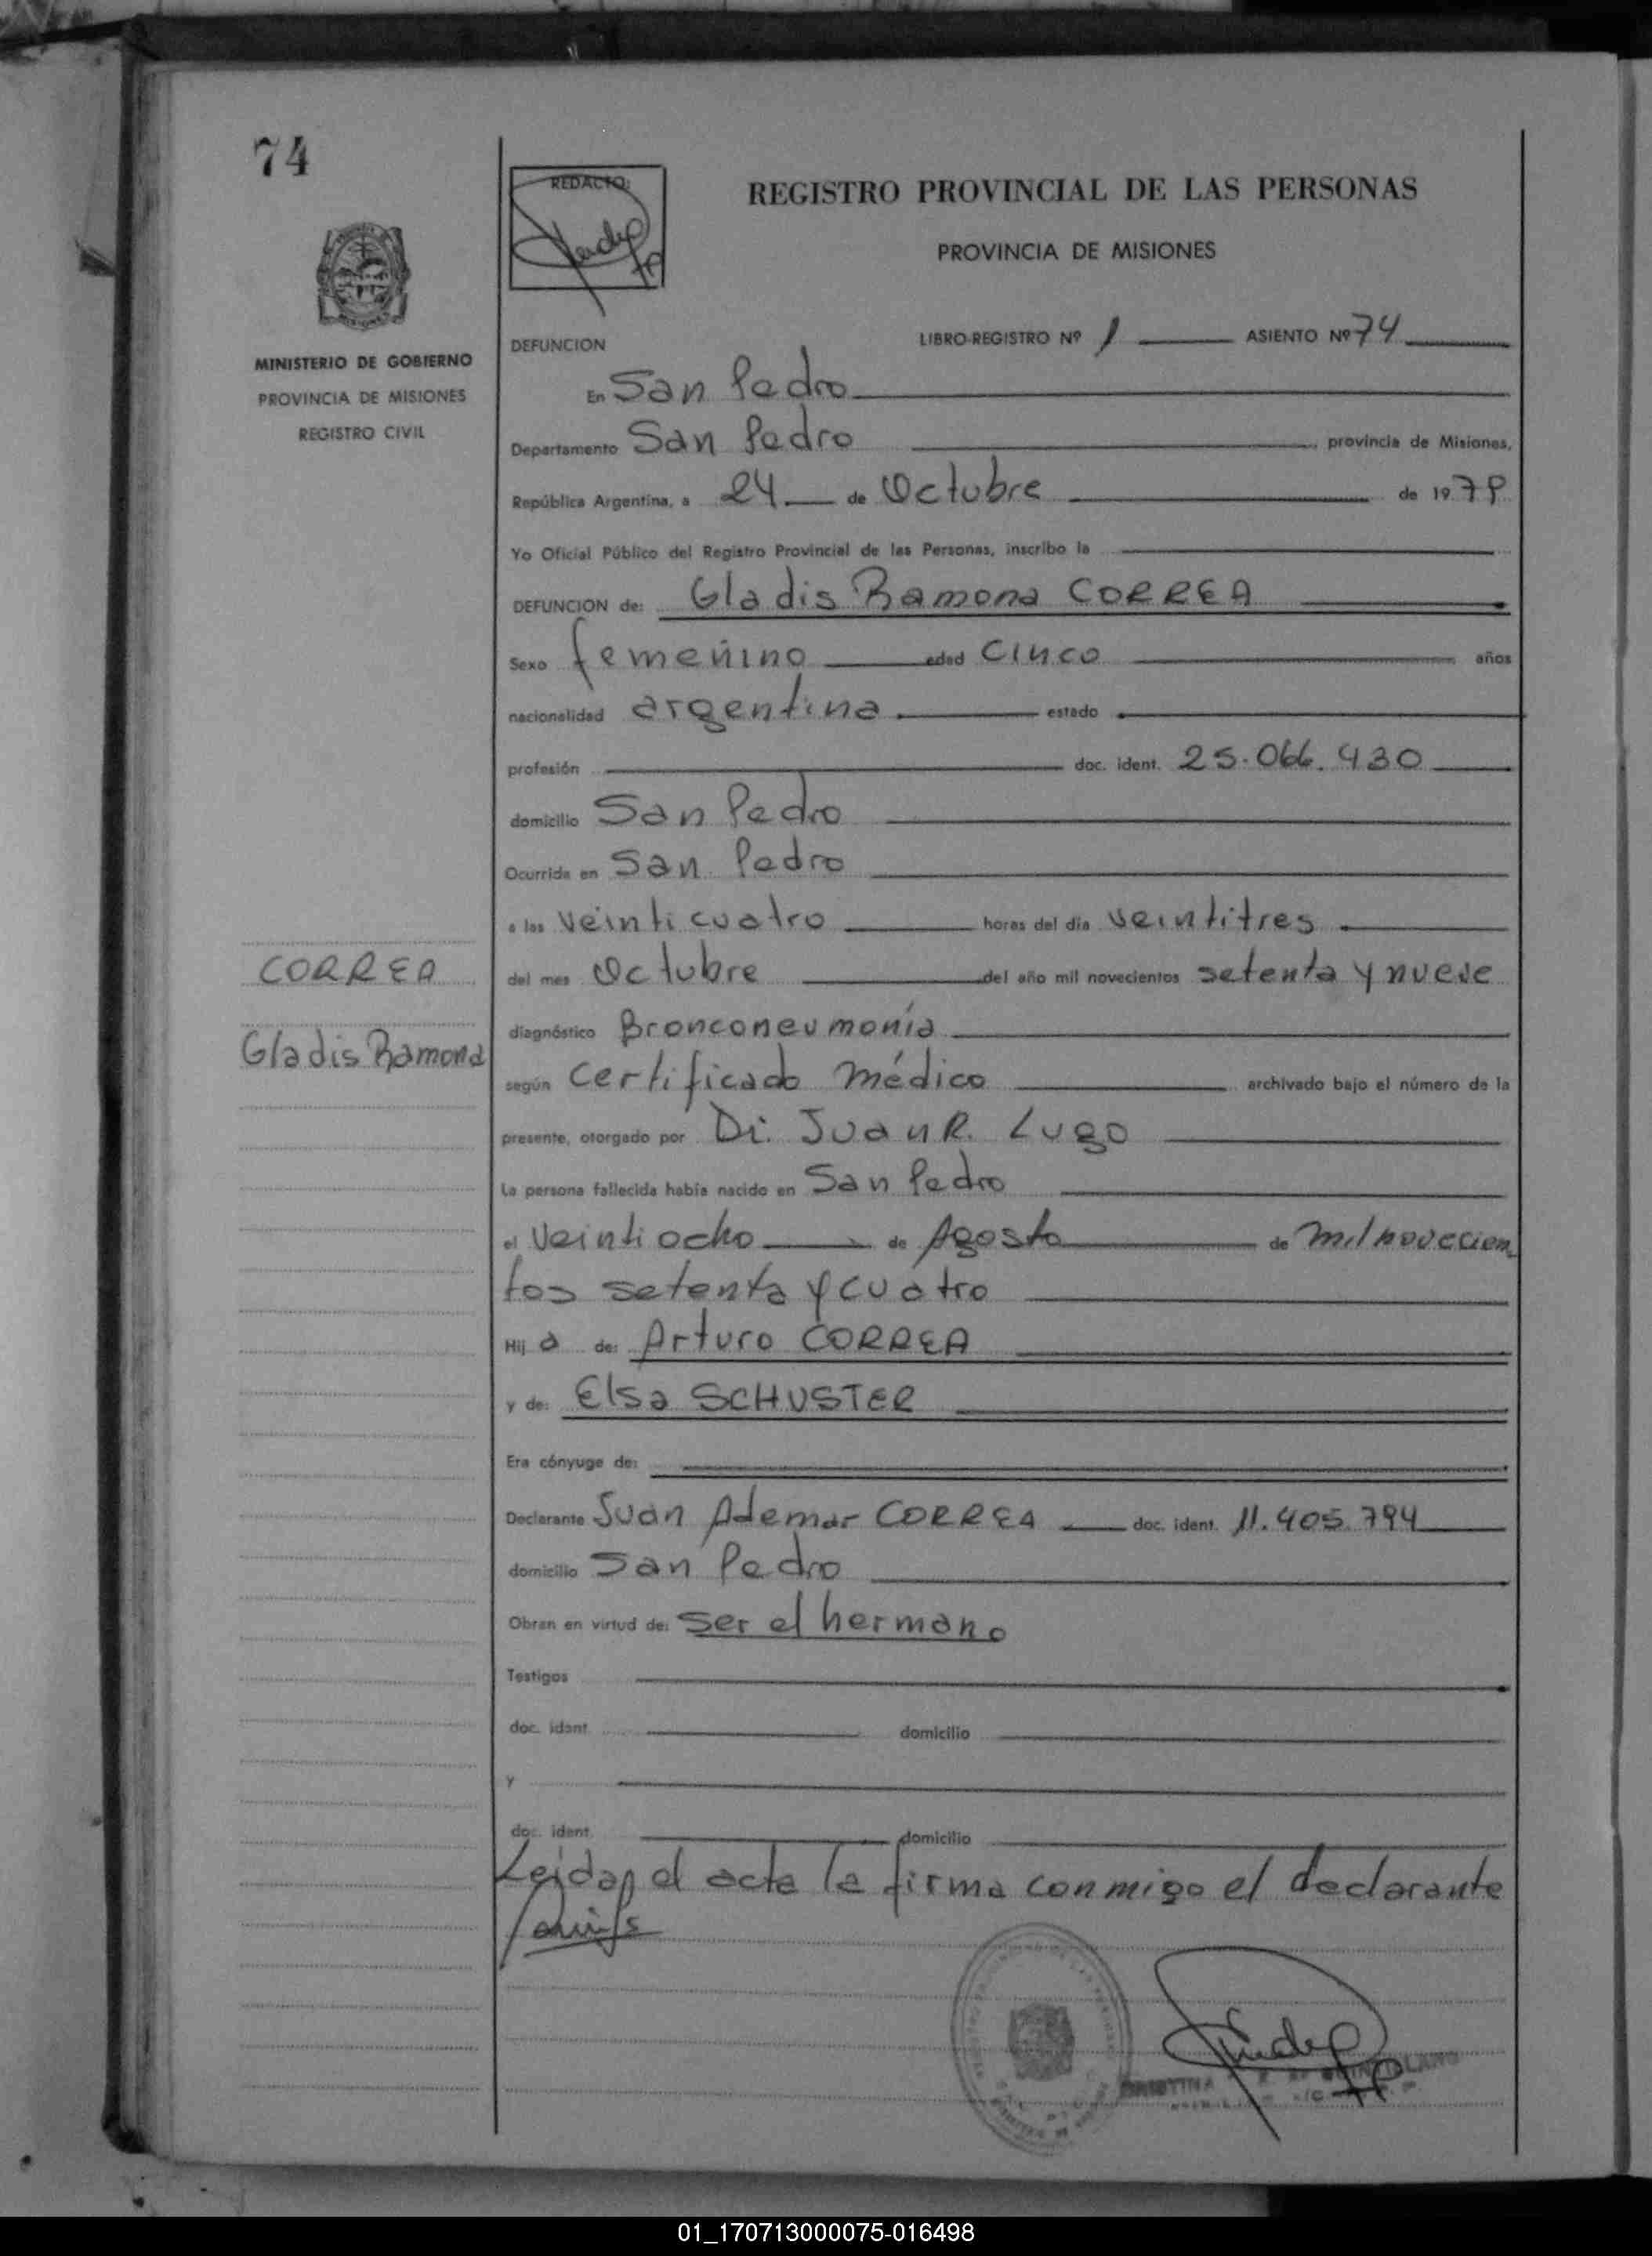 74
MINISTERIO DE GOBIERNO
PROVINCIA DE MISIONES
REGISTRO CIVIL
CORREA
Gladis Ramona
REDACTO:
REGISTRO PROVINCIAL DE LAS PERSONAS
PROVINCIA DE MISIONES
DEFUNCION LIBRO-REGISTRO Nº 1 ASIENTO Nº 74
En San Pedro
Departamento San Pedro provincia de Misiones,
República Argentina, a 24 de Octubre de 1979
Yo Oficial Público del Registro Provincial de las Personas, inscribo la
DEFUNCION de: Gladis Ramona CORREA
Sexo femenino edad cinco años
nacionalidad argentina estado
profesión doc. ident. 25.066.430
domicilio San Pedro
Ocurrida en San Pedro
a las veinticuatro horas del día veintitres
del mes Octubre del año mil novecientos setenta y nueve
diagnóstico Bronconeumonía
según certificado médico archivado bajo el número de la
presente, otorgado por Dr. Juan R. Lugo
La persona fallecida había nacido en San Pedro
el veintiocho de Agosto de mil novecien
tos setenta y cuatro
Hij a de: Arturo CORREA
y de: Elsa SCHUSTER
Era cónyuge de:
Declarante Juan Ademar CORREA doc. ident. 11.405.794
domicilio San Pedro
Obran en virtud de: ser el hermano
Testigos
doc. ident. domicilio
y
doc. ident. domicilio
Leida el acta la firma conmigo el declarante
01_170713000075-016498